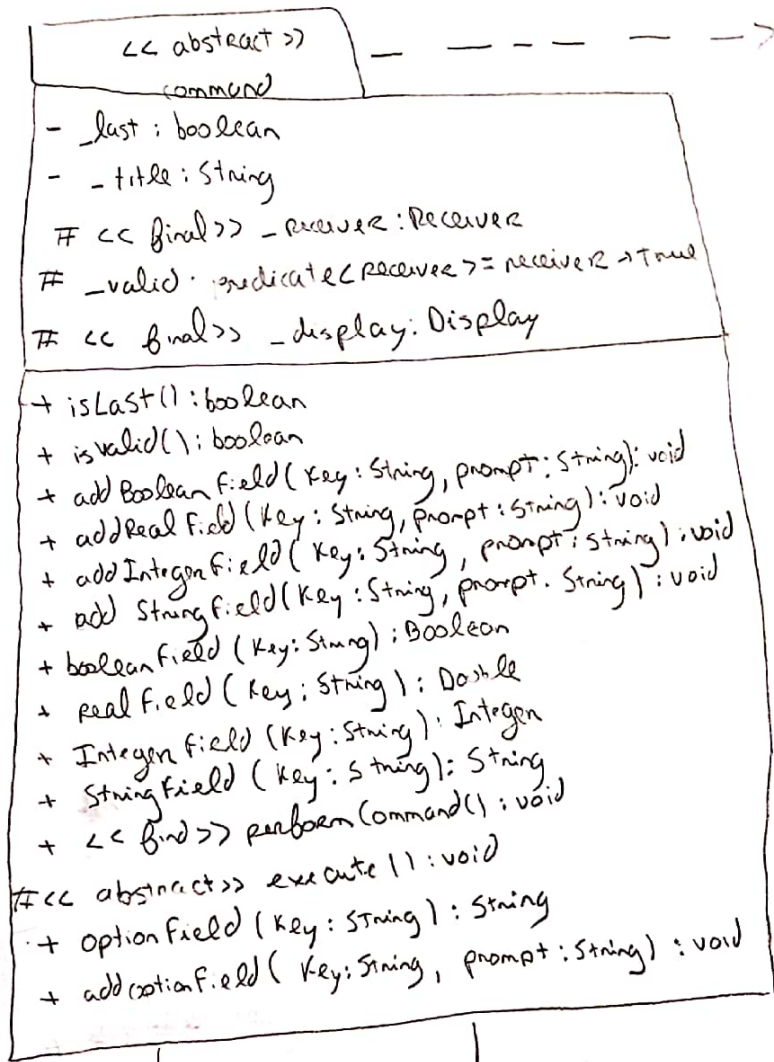 << abstract >>
command
- _last : boolean
- _title : String
# << final >> _receiver : Receiver
# _valid : predicate < Receiver > = receiver → True
# << final >> _display : Display
+ isLast() : boolean
+ isvalid() : boolean
+ addBooleanField( Key : String, prompt : String) : void
+ addRealField( Key : String, prompt : String) : void
+ addIntegerField( Key : String, prompt : String) : void
+ add StringField( Key : String, prompt . String) : void
+ booleanField ( Key : String) : Boolean
+ RealField ( Key : String) : Double
+ IntegerField ( Key : String) : Integer
+ StringField ( Key : String) : String
+ << final >> performCommand() : void
# << abstract >> execute () : void
+ optionField ( Key : String) : String
+ addoptionField ( Key : String, prompt : String) : void